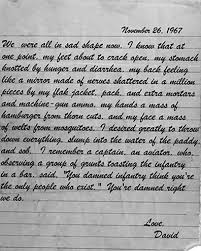 November 26, 1967
We were all in sad shape now. I know that at
one point, my feet about to crack open, my stomach
knotted by hunger and diarrhea, my back feeling
like a mirror made of nerves shattered in a million
pieces by my flak jacket, pack, and extra mortars
and machine-gun ammo, my hands a mass of
hamburger from thorn cuts, and my face a mass
of welts from mosquitoes, I desired greatly to throw
down everything, slump into the water of the paddy,
and sob. I remember a captain, an aviator, who
observing a group of grunts toasting the infantry
in a bar, said, "You damned infantry think you're
the only people who exist." You're damned right
we do.
Love,
David